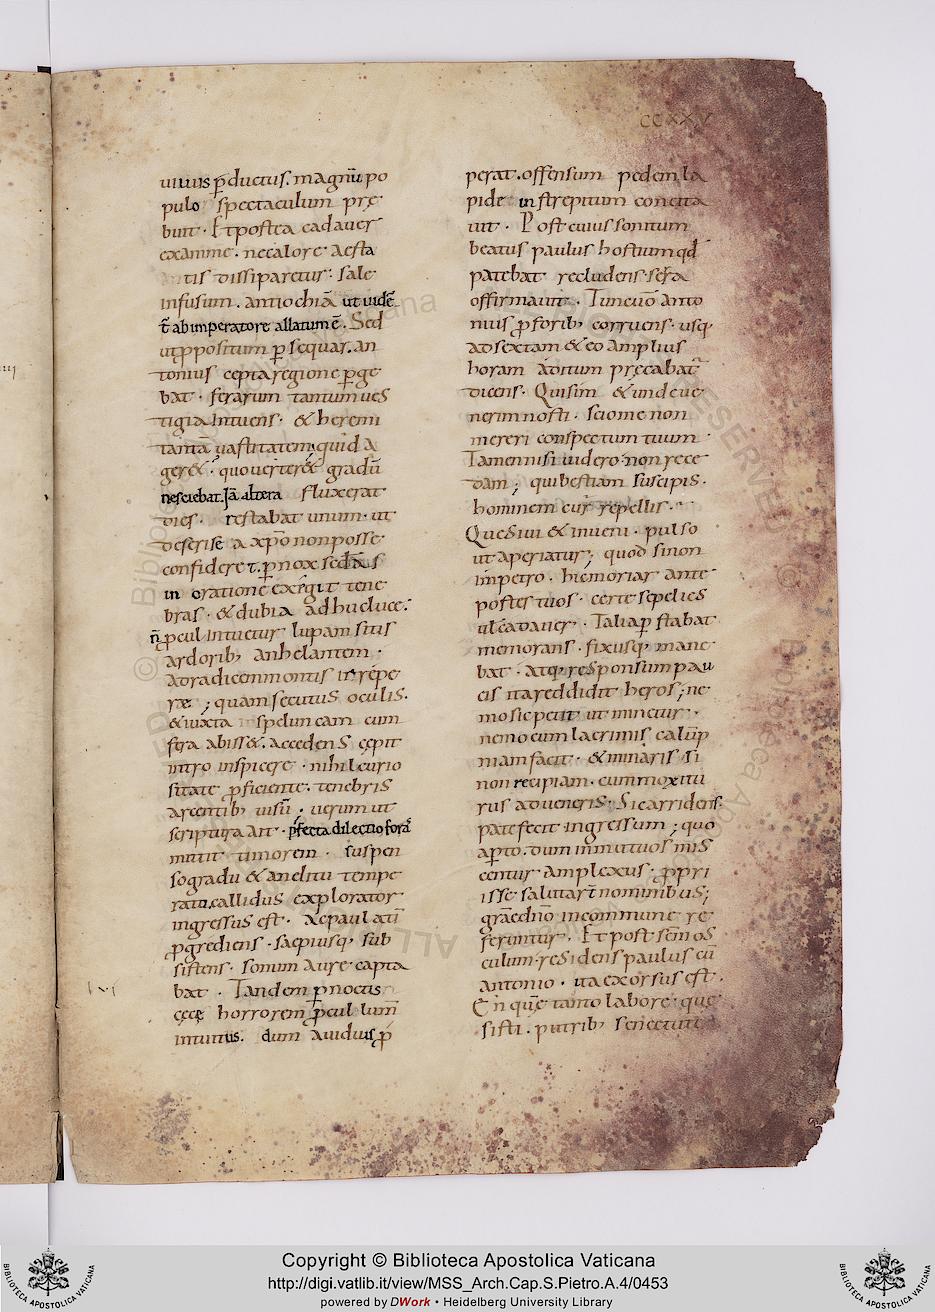 CCXXV
uiuus p̄ductus. magnū po
pulo spectaculum prę
buit · Et postea cadauer
exanime · ne calore aesta
tis dissiparetur: sale
infusum. antiochiā ut uidē
t̄ ab imperatore allatum ē. Sed
ut ppositum p̄sequar. an
tonius cepta regione p̄ge
bat · ferarum tantum ues
tigia intuens · & heremi
tantā uastitatem; quid a
ger&· quo uerter& gradū
nesciebat. Jā altera fluxerat
dies · restabat unum · ut
deserise a xp̄o non posse
confideret. p̄nox secd̄as
in oratione exegit tene
bras · & dubia adhuc luce·
n̄ pcul intuetur lupam sitis
ardorib; anhelantem ·
ad radicem montis inrepe
re ; quam secutus oculis.
& iuxta speluncam cum
fera abiss&. accedens cępit
intro inspicere · nihil curio
sitate p̄ficiente · tenebris
arcentib; uisū ; uerum ut
scriptura ait · p̄fecta dilectio forā
mittit timorem · suspen
so gradu & anelitu tempe
rato. callidus explorator
ingressus est · ac paulatī
pgrediens · saepiusq; sub
sistens · sonum aure capta
bat · Tandem p̄ noctis
cęcę horrorem pcul lum̄
intuitus. dum auidius p̄
perat. offensum pedem la
pide in strepitum concita
uit · Post cuius sonitum
beatus paulus hostium qd̄
patebat recludens sera
offirmauit · Tunc uō anto
nius p̄ forib; corruens · usq;
ad sextam & eo amplius
horam aditum precabat̄
dicens · Qui sim & unde ue
nerim nosti · scio me non
mereri conspectum tuum ·
Tamen nisi uidero · non rece
dam ; qui bestiam suscipis ·
hominem cur repellis ·
Quesiui & inueni · pulso
ut aperiatur ; quod si non
impetro · hic moriar ante
postes tuos · certe sepelies
uł cadauer · Talia p̄stabat
memorans · fixusq; mane
bat · atq; responsum pau
cis ita reddidit heros ; ne
mo sic petit ut minetur ·
nemo cum lacrimis calūp
niam facit · & miraris si
non recipiam · cum moxitū
rus adueneris · Sic arridens
patefecit ingressum ; quo
apto. dum in mutuos mis
centur amplexus · ppri
isse salutart̄ nominibus ;
gr̄ae dn̄o in commune re
feruntur · Et post sc̄m os
culum · residens paulus cū
antonio · ita exorsus est ·
En quē tanto labore que
sisti. putrib; senectute
Copyright © Biblioteca Apostolica Vaticana
http://digi.vatlib.it/view/MSS_Arch.Cap.S.Pietro.A.4/0453
powered by DWork • Heidelberg University Library